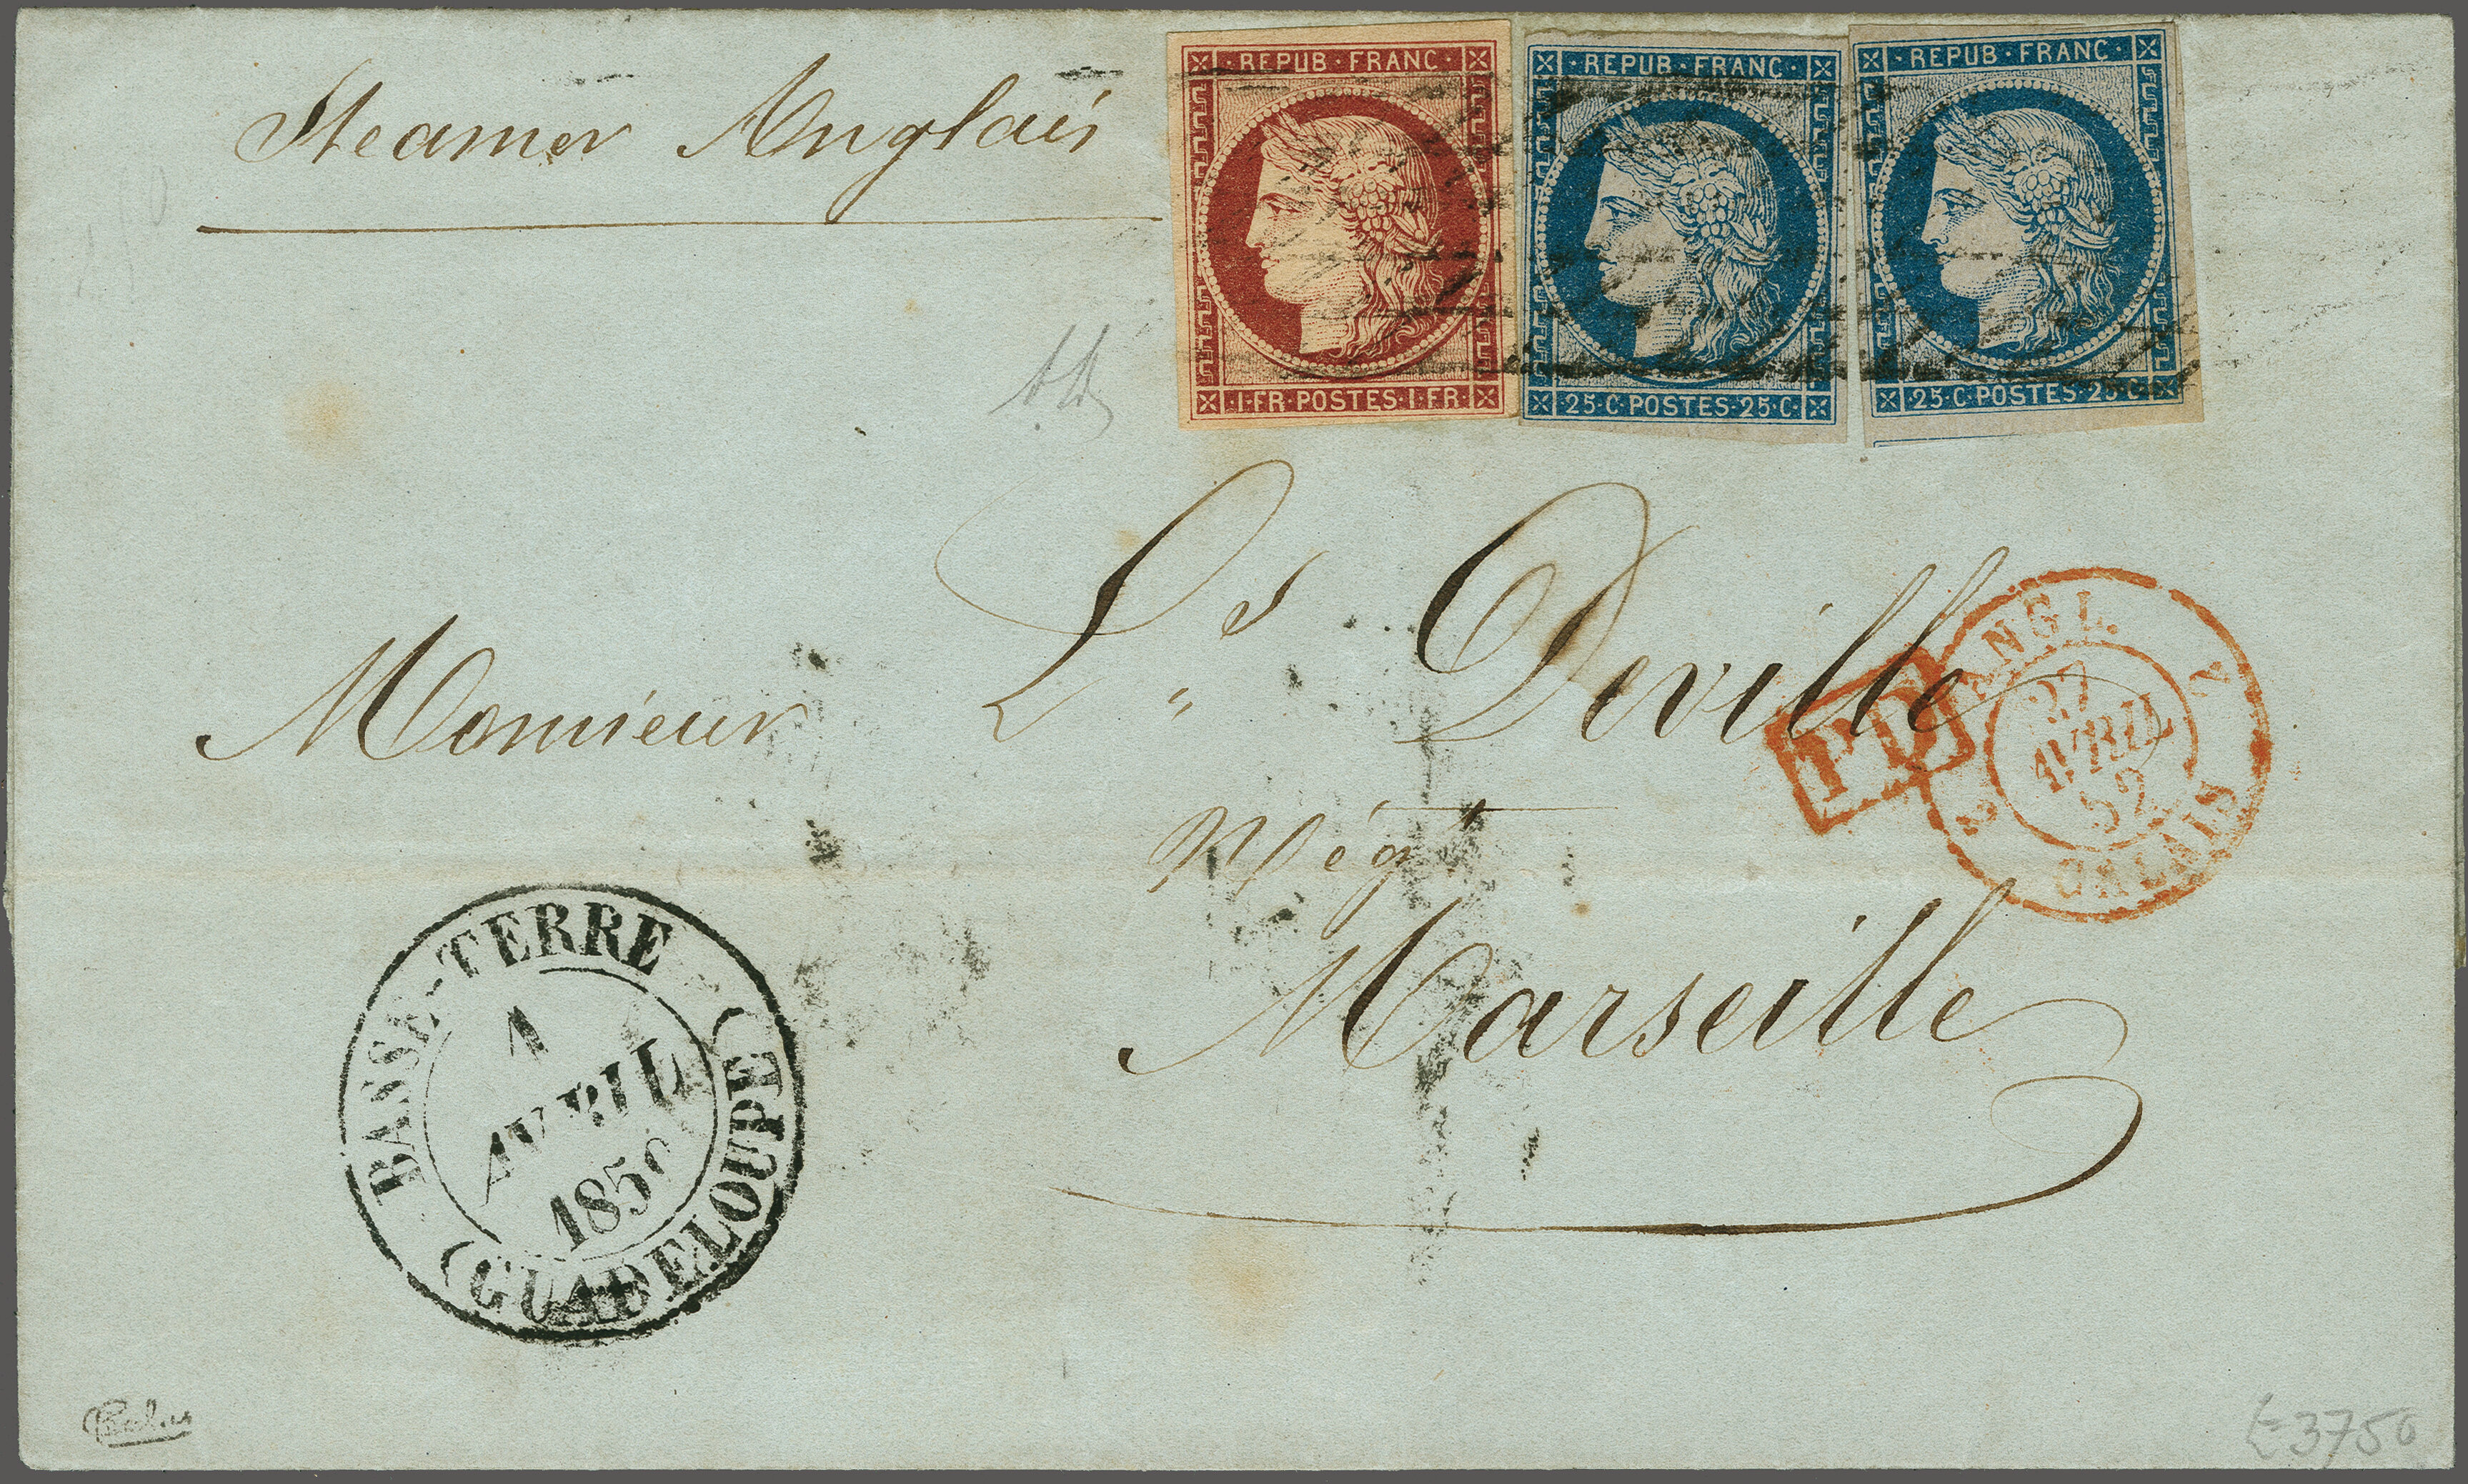 Steamer Anglais
REPUB · FRANC ·
1 · FR · POSTES · 1 · FR ·
· REPUB · FRANC ·
25 · C · POSTES · 25 · C ·
· REPUB · FRANC ·
25 · C · POSTES · 25 · C ·
Monsieur Ls Deville
Nég
Marseille
PD
ANGL.
2 27 2
AVRIL
52
CALAIS
BASSE-TERRE
1
AVRIL
185
(GUADELOUPE)
£3750